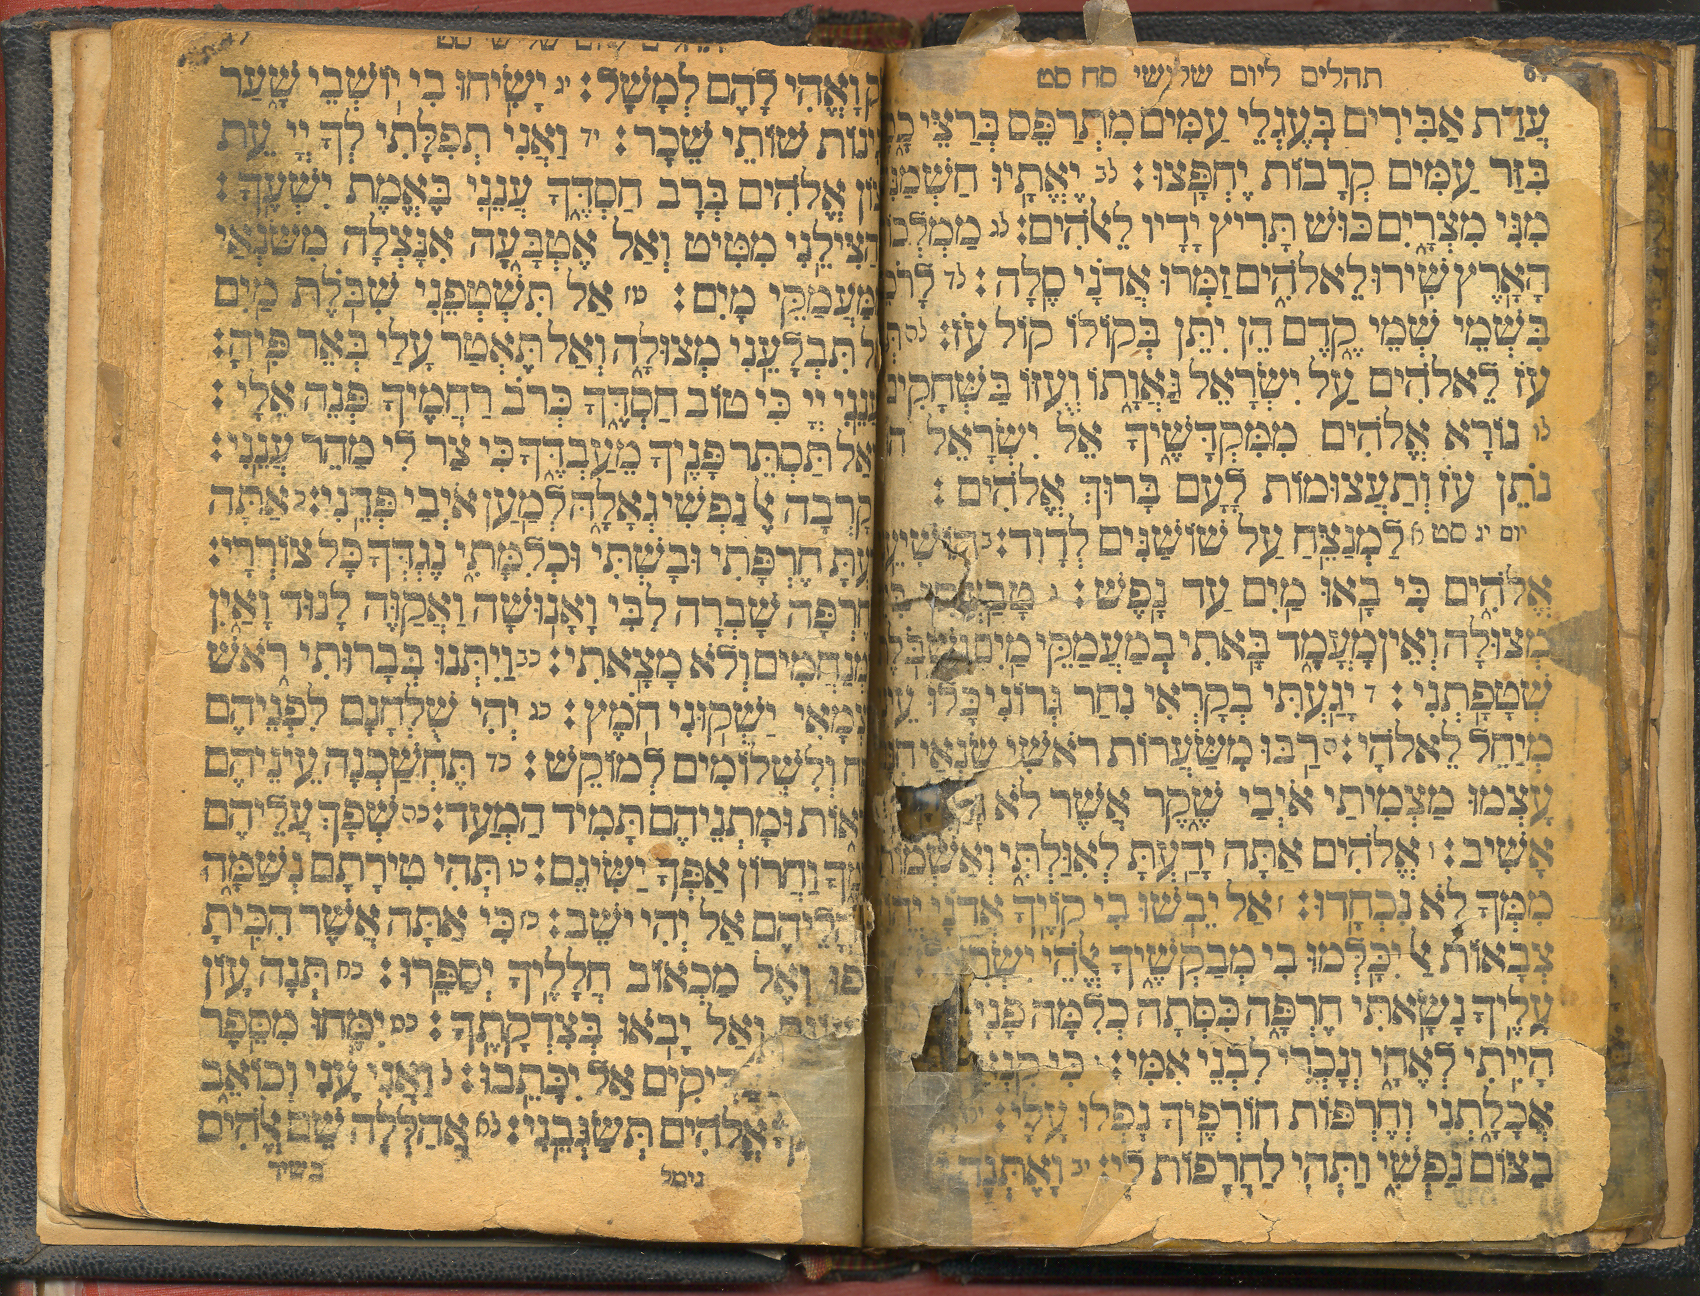 תהלים ליום שלישי סח סט
עֲדַת אַבִּירִים בְּעֶגְלֵי עַמִּים מִתְרַפֵּס בְּרַצֵּי
בִּזַּר עַמִּים קְרָבוֹת יֶחְפָּצוּ: לב יֶאֱתָיוּ
מִנִּי מִצְרָיִם כּוּשׁ תָּרִיץ יָדָיו לֵאלֹהִים: לג
הָאָרֶץ שִׁירוּ לֵאלֹהִים זַמְּרוּ אֲדֹנָי סֶלָה: לד
בִּשְׁמֵי שְׁמֵי קֶדֶם הֵן יִתֵּן בְּקוֹלוֹ קוֹל עֹז: לה
עֹז לֵאלֹהִים עַל יִשְׂרָאֵל גַּאֲוָתוֹ וְעֻזּוֹ בַּשְּׁחָקִים
לו נוֹרָא אֱלֹהִים מִמִּקְדָּשֶׁיךָ אֵל יִשְׂרָאֵל
נֹתֵן עֹז וְתַעֲצוּמוֹת לָעָם בָּרוּךְ אֱלֹהִים:
יום יג סט א לַמְנַצֵּחַ עַל שׁוֹשַׁנִּים לְדָוִד: ב
אֱלֹהִים כִּי בָאוּ מַיִם עַד נָפֶשׁ: ג
מְצוּלָה וְאֵין מָעֳמָד בָּאתִי בְמַעֲמַקֵּי מַיִם
שְׁטָפָתְנִי: ד יָגַעְתִּי בְקָרְאִי נִחַר גְּרוֹנִי כָּלוּ
מְיַחֵל לֵאלֹהָי: ה רַבּוּ מִשַּׂעֲרוֹת רֹאשִׁי שֹׂנְאַי
עָצְמוּ מַצְמִיתַי אֹיְבַי שֶׁקֶר אֲשֶׁר לֹא
אָשִׁיב: ו אֱלֹהִים אַתָּה יָדַעְתָּ לְאִוַּלְתִּי
מִמְּךָ לֹא נִכְחָדוּ: ז אַל יֵבֹשׁוּ בִי קֹוֶיךָ אֲדֹנָי
צְבָאוֹת אַל יִכָּלְמוּ בִי מְבַקְשֶׁיךָ אֱלֹהֵי
עָלֶיךָ נָשָׂאתִי חֶרְפָּה כִּסְּתָה כְלִמָּה פָנָי
הָיִיתִי לְאֶחָי וְנָכְרִי לִבְנֵי אִמִּי: כִּי
אֲכָלָתְנִי וְחֶרְפּוֹת חוֹרְפֶיךָ נָפְלוּ עָלָי:
בַצּוֹם נַפְשִׁי וַתְּהִי לַחֲרָפוֹת לִי: יב וָאֶתְּנָה
וָאֱהִי לָהֶם לְמָשָׁל: יג יָשִׂיחוּ בִי יוֹשְׁבֵי שָׁעַר
שׁוֹתֵי שֵׁכָר: יד וַאֲנִי תְפִלָּתִי לְךָ יְיָ עֵת
אֱלֹהִים בְּרָב חַסְדֶּךָ עֲנֵנִי בֶּאֱמֶת יִשְׁעֶךָ:
הַצִּילֵנִי מִטִּיט וְאַל אֶטְבָּעָה אִנָּצְלָה מִשֹּׂנְאַי
מִמַּעֲמַקֵּי מָיִם: טז אַל תִּשְׁטְפֵנִי שִׁבֹּלֶת מַיִם
תִּבְלָעֵנִי מְצוּלָה וְאַל תֶּאְטַר עָלַי בְּאֵר פִּיהָ:
עֲנֵנִי יְיָ כִּי טוֹב חַסְדֶּךָ כְּרֹב רַחֲמֶיךָ פְּנֵה אֵלָי:
וְאַל תַּסְתֵּר פָּנֶיךָ מֵעַבְדֶּךָ כִּי צַר לִי מַהֵר עֲנֵנִי:
קָרְבָה אֶל נַפְשִׁי גְאָלָהּ לְמַעַן אֹיְבַי פְּדֵנִי: כ אַתָּה
חֶרְפָּתִי וּבָשְׁתִּי וּכְלִמָּתִי נֶגְדְּךָ כָּל צוֹרְרָי:
חֶרְפָּה שָׁבְרָה לִבִּי וָאָנוּשָׁה וָאֲקַוֶּה לָנוּד וָאַיִן
וְלֹא מָצָאתִי: כב וַיִּתְּנוּ בְּבָרוּתִי רֹאשׁ
יַשְׁקוּנִי חֹמֶץ: כג יְהִי שֻׁלְחָנָם לִפְנֵיהֶם
וְלִשְׁלוֹמִים לְמוֹקֵשׁ: כד תֶּחְשַׁכְנָה עֵינֵיהֶם
וּמָתְנֵיהֶם תָּמִיד הַמְעַד: כה שְׁפָךְ עֲלֵיהֶם
וַחֲרוֹן אַפְּךָ יַשִּׂיגֵם: כו תְּהִי טִירָתָם נְשַׁמָּה
אַל יְהִי יֹשֵׁב: כז כִּי אַתָּה אֲשֶׁר הִכִּיתָ
וְאֶל מַכְאוֹב חֲלָלֶיךָ יְסַפֵּרוּ: כח תְּנָה עָוֹן
וְאַל יָבֹאוּ בְּצִדְקָתֶךָ: כט יִמָּחוּ מִסֵּפֶר
אַל יִכָּתֵבוּ: ל וַאֲנִי עָנִי וְכוֹאֵב
אֱלֹהִים תְּשַׂגְּבֵנִי: לא אֲהַלְלָה שֵׁם אֱלֹהִים
גימל בשיר